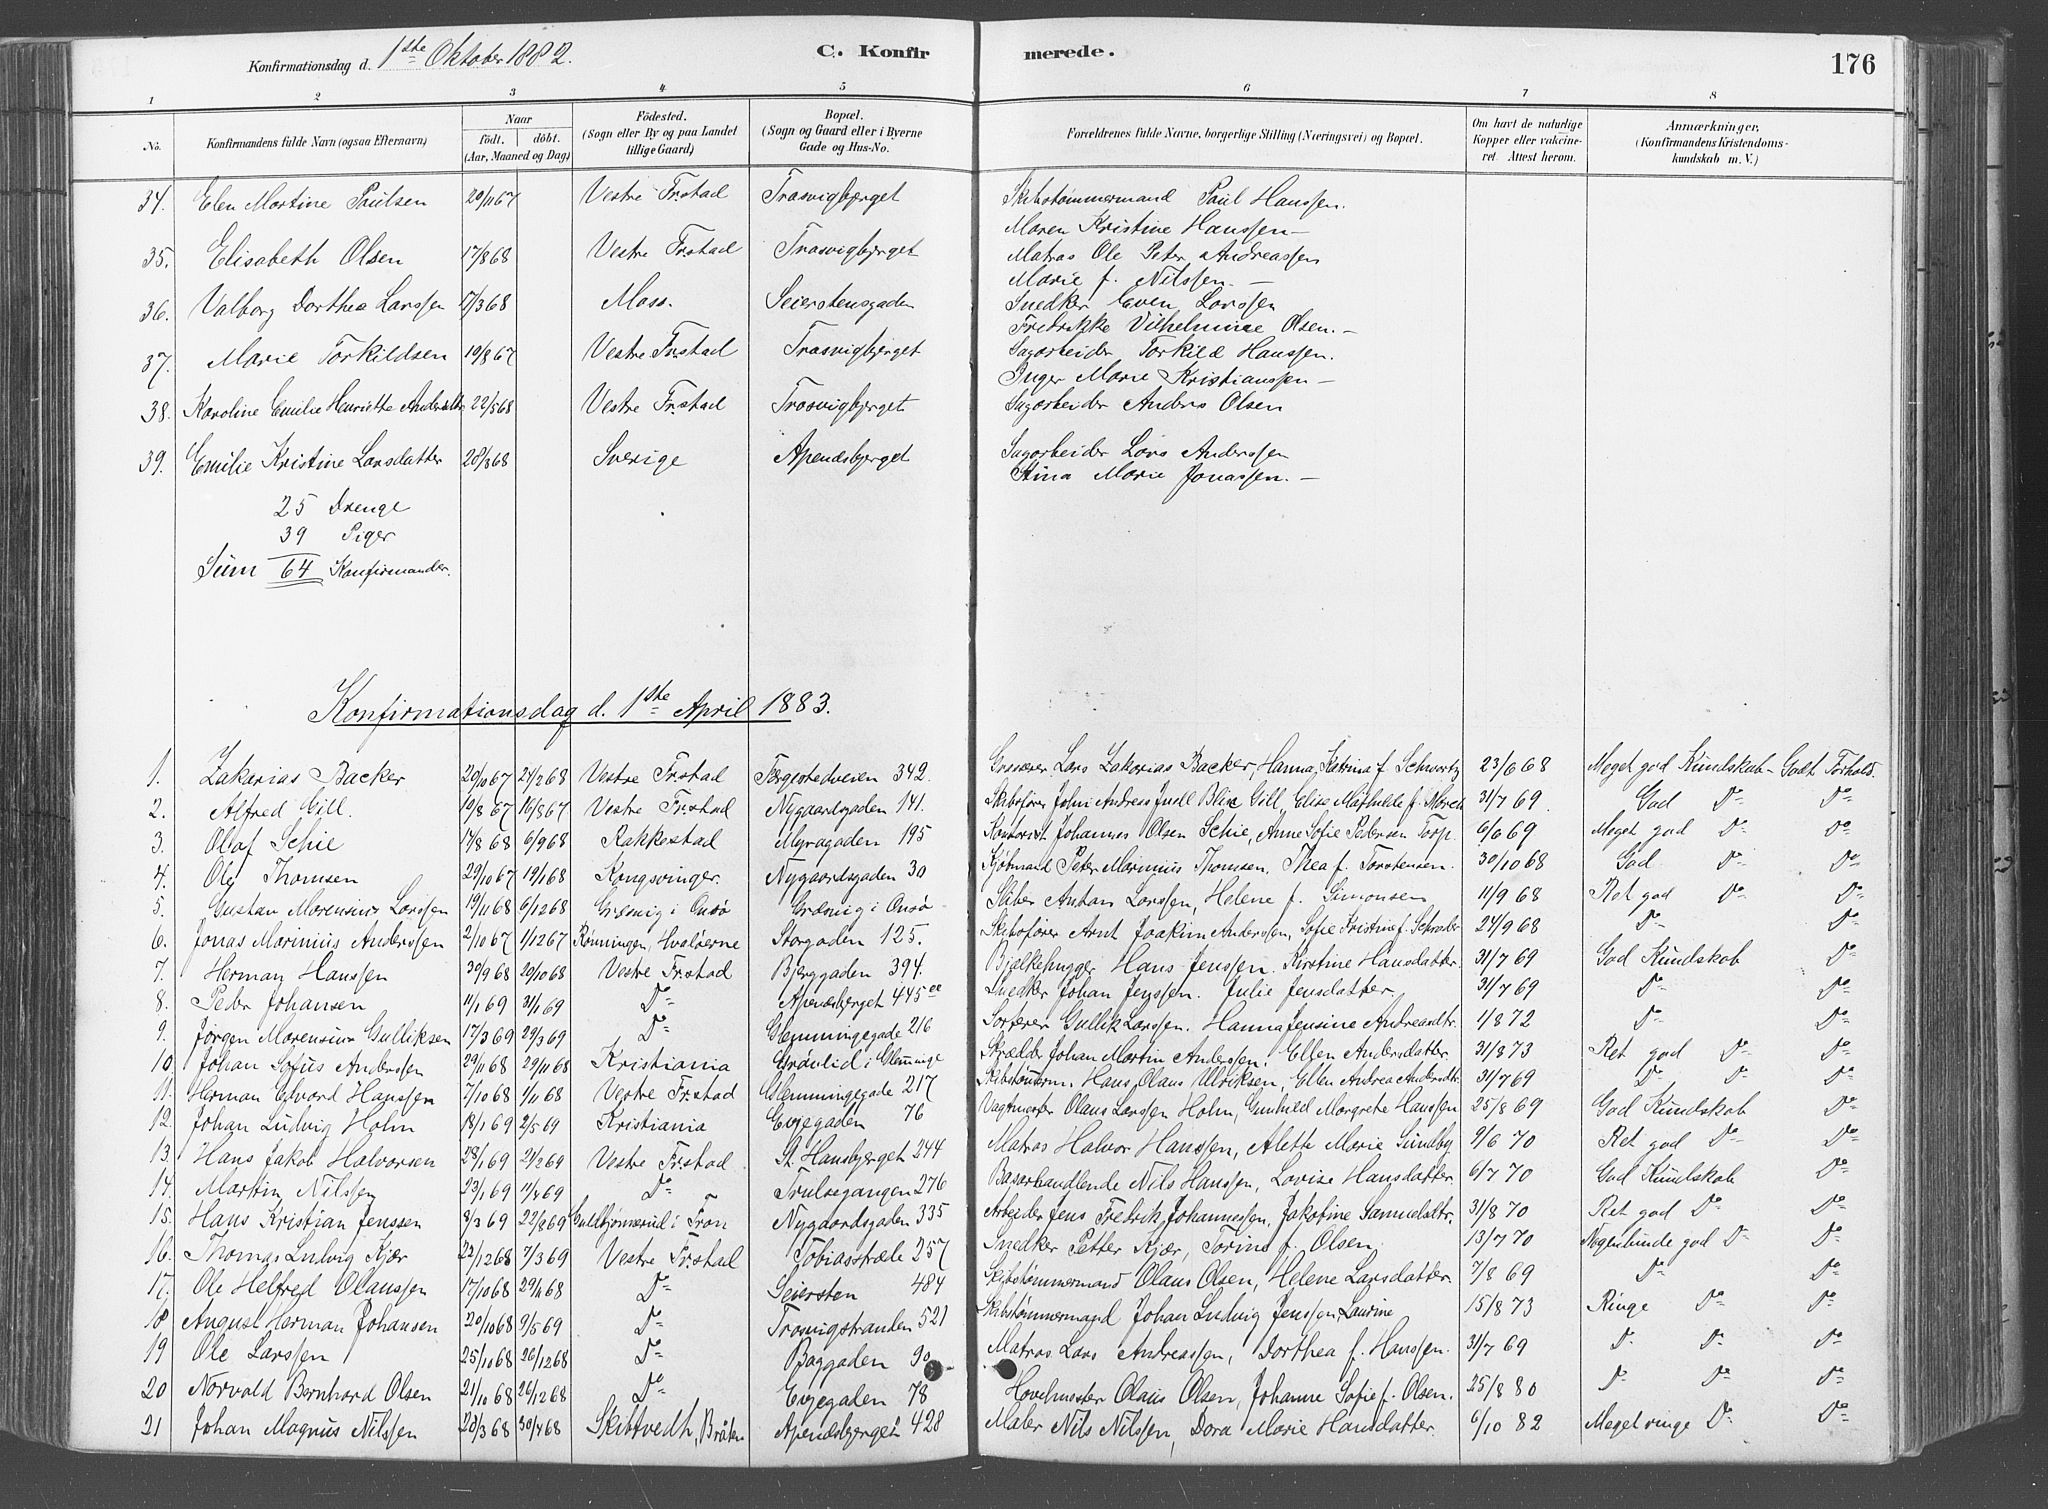 Konfirmationsdag d. 1ste Oktober 1882. C. Konfirmerede. 176
1 2 3 4 5 6 7 8
No. Konfirmandens fulde Navn (ogsaa Efternavn) Naar Födt. döbt. (Aar, Maaned og Dag) Födested. (Sogn eller By og paa Landet tillige Gaard) Bopæl. (Sogn og Gaard eller i Byerne Gade og Hus-No. Forældrenes fulde Navne, borgerlige Stilling (Næringsvei) og Bopæl. Om havt de naturlige Kopper eller vakcineret. Attest herom. Anmærkninger, (Konfirmandens Kristendomskundskab m. V.)
34. Elen Martine Paulsen 20/11 67 Vestre Fr.stad Trosvigbjerget Skibstømmermand Paul Hanssen.
Maren Kristine Hanssen –
35. Elisabeth Olsen 17/8 68 Vestre Fr.stad Trosvigbjerget Matros Ole Peter Andreassen
Marie f. Nilssen. –
36. Valborg Dorthea Larssen 17/3 68 Moss. Seierstensgaden Snedker Even Larssen
Fredrikke Vilhelmine Olsen. –
37. Marie Torkildsen 19/8 67 Vestre Fr.stad Trosvigbjerget Sagarbeider Torkild Hanssen.
Inger Marie Kristianssen –
38. Karoline Emilie Henriette 22/5 68 Vestre Fr.stad Trosvigbjerget Sagarbeider Anders Olsen
39. Emilie Kristine Larsdatter 28/3 68 Sverige Apenæsbjerget Sagarbeider Lars Anderssen
Stina Marie Jonassen. –
25 Drenge
39 Piger
Sum 64 Konfirmander.
Konfirmationsdag d. 1ste April 1883.
1. Zakarias Backer 20/10 67 24/2 68 Vestre Fr.stad Færgestedveien 342. Lars Zakarias Backer, Hanna Katrina f. Schwartz 23/6 68 Meget god Kundskab – Godt Forhold.
2. Alfred Gill. 19/8 67 16/8 67 Vestre Fr.stad Nygaardsgaden 141. Skibsfører John Andreas Gill, Elise Mathilde f. 31/7 69. God Do Do
3. Olaf Schie 14/8 68 6/9 68 Rakkestad Myragaden 195 Kontorist Johannes Olsen Schie, Anne Sofie Petersen Torp. 6/6 69 Meget god Do Do
4. Ole Thomsen 29/10 67 19/1 68 Kongsvinger. Nygaardsgaden 30 Kjøbmand Peter Marinius Thomsen, Thea f. Torstensen. 30/10 68 God Do Do
5. Gustav Morensius Larssen 19/11 68 6/12 68 Græsvig i Onsø Græsvig i Onsø Skber Anton Larssen, Helene f. Simonsen 11/9 68 Ret god Do Do
6. Jonas Marinius Anderssen 2/10 67 1/12 67 Rønningen, Hvaløerne Storgaden 125. Skibsfører Arnt Joakim Anderssen, Sofie Kristine f. Schrøder 24/9 68 Do Do
7. Herman Hanssen 30/9 68 20/10 68 Vestre Fr.stad Bjerggaden 394. Bjelkehugger Hans Jenssen. Kirstine Hansdatter. 31/7 69 God Kundskab Do
8. Peter Johansen 11/1 69 31/1 69 Do Apenæsbjerget 445 Snedker Johan Jenssen. Julie Jensdatter 31/7 69 Do Do
9. Jørgen Morensius Gulliksen 17/3 69 29/3 69 Do Glemmingegade 216 Sorterer Gullik Larssen. Hanna Jensine Andreasdtr. 1/8 72 Do Do
10. Johan Sofus Anderssen 29/1 68 29/11 68 Kristiania Grøvlid i Glemmige Skrædder Johan Martin Anderssen, Ellen Andersdatter 31/8 73 Ret god Do Do
11. Herman Edvard Hanssen 7/10 68 1/11 68 Vestre Fr.stad Glemmingegade 217 Skibstømm. Hans Olaus Ulriksen, Ellen Andrea Andersdtr. 31/7 69 Do Do Do
12. Johan Ludvig Holm 18/1 69 2/5 69 Kristiania Evjegaden 76 Vagtmester Olaus Larssen Holm, Gunhild Margrete Hanssen 25/8 69 God Kundskab Do
13. Hans Jakob Halvorsen 28/1 69 21/2 69 Vestre Fr.stad St. Hansbjerget 244 Matros Halvor Hanssen, Aleth Marie Sundby 9/6 70 Ret god Do Do
14. Martin Nilssen 23/1 69 11/4 69 Do Trulsegangen 276 Basarhandlende Nils Hanssen, Lovise Hansdatter. 6/7 70 God Kundskab Do
15. Hans Kristian Jenssen 8/3 69 22/8 69 i Tron Nygaardsgaden 335 Arbeider Jens Fredrik Johannessen, Jakobine Samuelsdtr. 31/8 70 Ret god Do Do
16. Thomas Ludvig Kjær 22/12 68 7/3 69 Vestre Fr.stad Tobiasstræde 257 Snedker Petter Kjær, Torine f. Olsen 13/7 70 Nogenlunde god Do Do
17. Ole Helfred Olaussen 17/10 68 29/11 68 Do Seiersten 484 Skibstømmermand Olaus Olsen, Helene Larsdatter. 7/8 69 Do Do
18 August Herman Johansen 20/10 68 9/5 69 Do Trosvigstranden 521 Skibstømmermand Johan Ludvig Jenssen, Laurine 15/8 73 Ringe Do Do
19 Ole Larssen 25/10 68 26/12 68 Do Baggaden 90 Matros Lars Andreassen, Dorthea f. Hanssen. 31/7 69 Do Do Do
20 Norvald Bernhard Olsen 21/10 68 26/12 68 Do Evjegaden 78 Hovelmester Olaus Olsen, Johanne Sofie f. Olsen. 25/8 80 Do Do Do
21 Johan Magnus Nilssen 20/3 68 30/4 68 Skibtvedt, Bråten Apenæsbjerget 428 Maler Nils Nilssen, Dora Marie Hansdatter. 6/10 82 Meget ringe Do Do